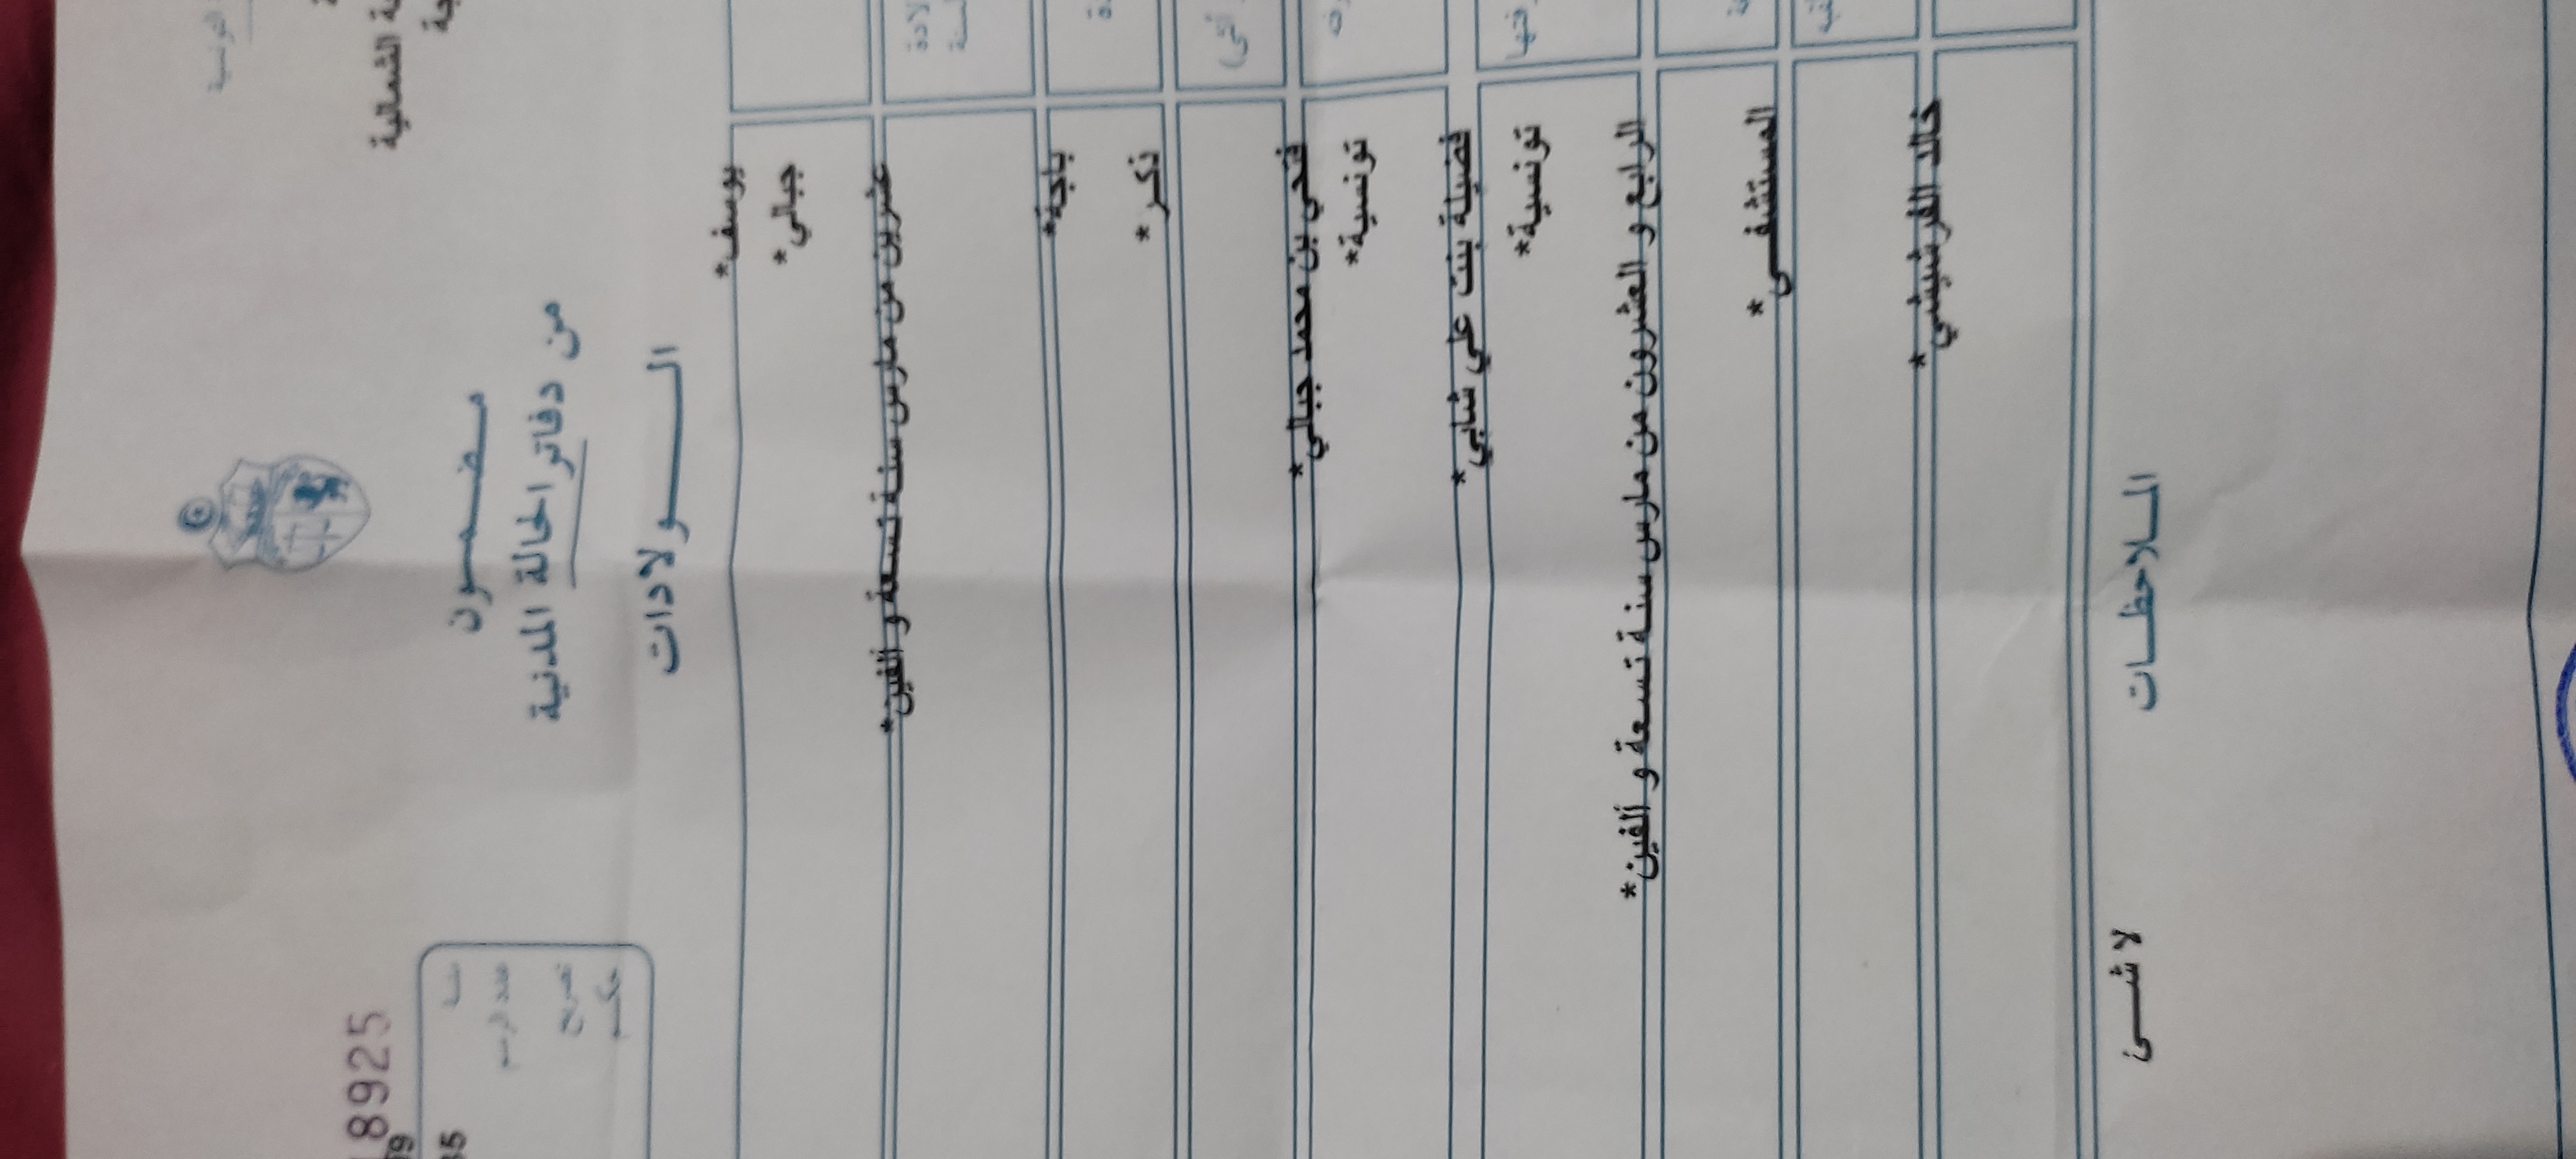 التونسية
الشمالية
8925
مضمون
من دفاتر الحالة المدنية
الولادات
عدد الرسم
تصريح
حكم
يوسف*
جبالي*
عشرين من مارس سنة تسعة و ألفين*
باجة*
ذكر*
فتحي بن محمد جبالي*
تونسية*
فضيلة بنت علي شابي*
تونسية*
الرابع و العشرون من مارس سنة تسعة و ألفين*
المستشفى*
خالد الفرشيشي*
الملاحظات
لا شئ